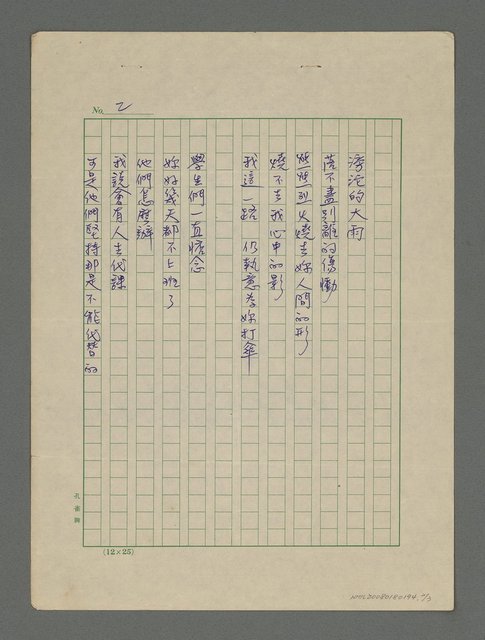 No. 2
滂沱的大雨
落不盡別離的傷慟
熊熊烈火燒去妳人間的形
燒不去我心中的影
我這一路 仍執意為妳打傘
學生們一直惦念
妳好幾天都不上班了
他們怎麼辦
我說會有人去代課
可是他們堅持那是不能代替的
孔雀牌
(12×25)
NMTL20080180194. 2/3